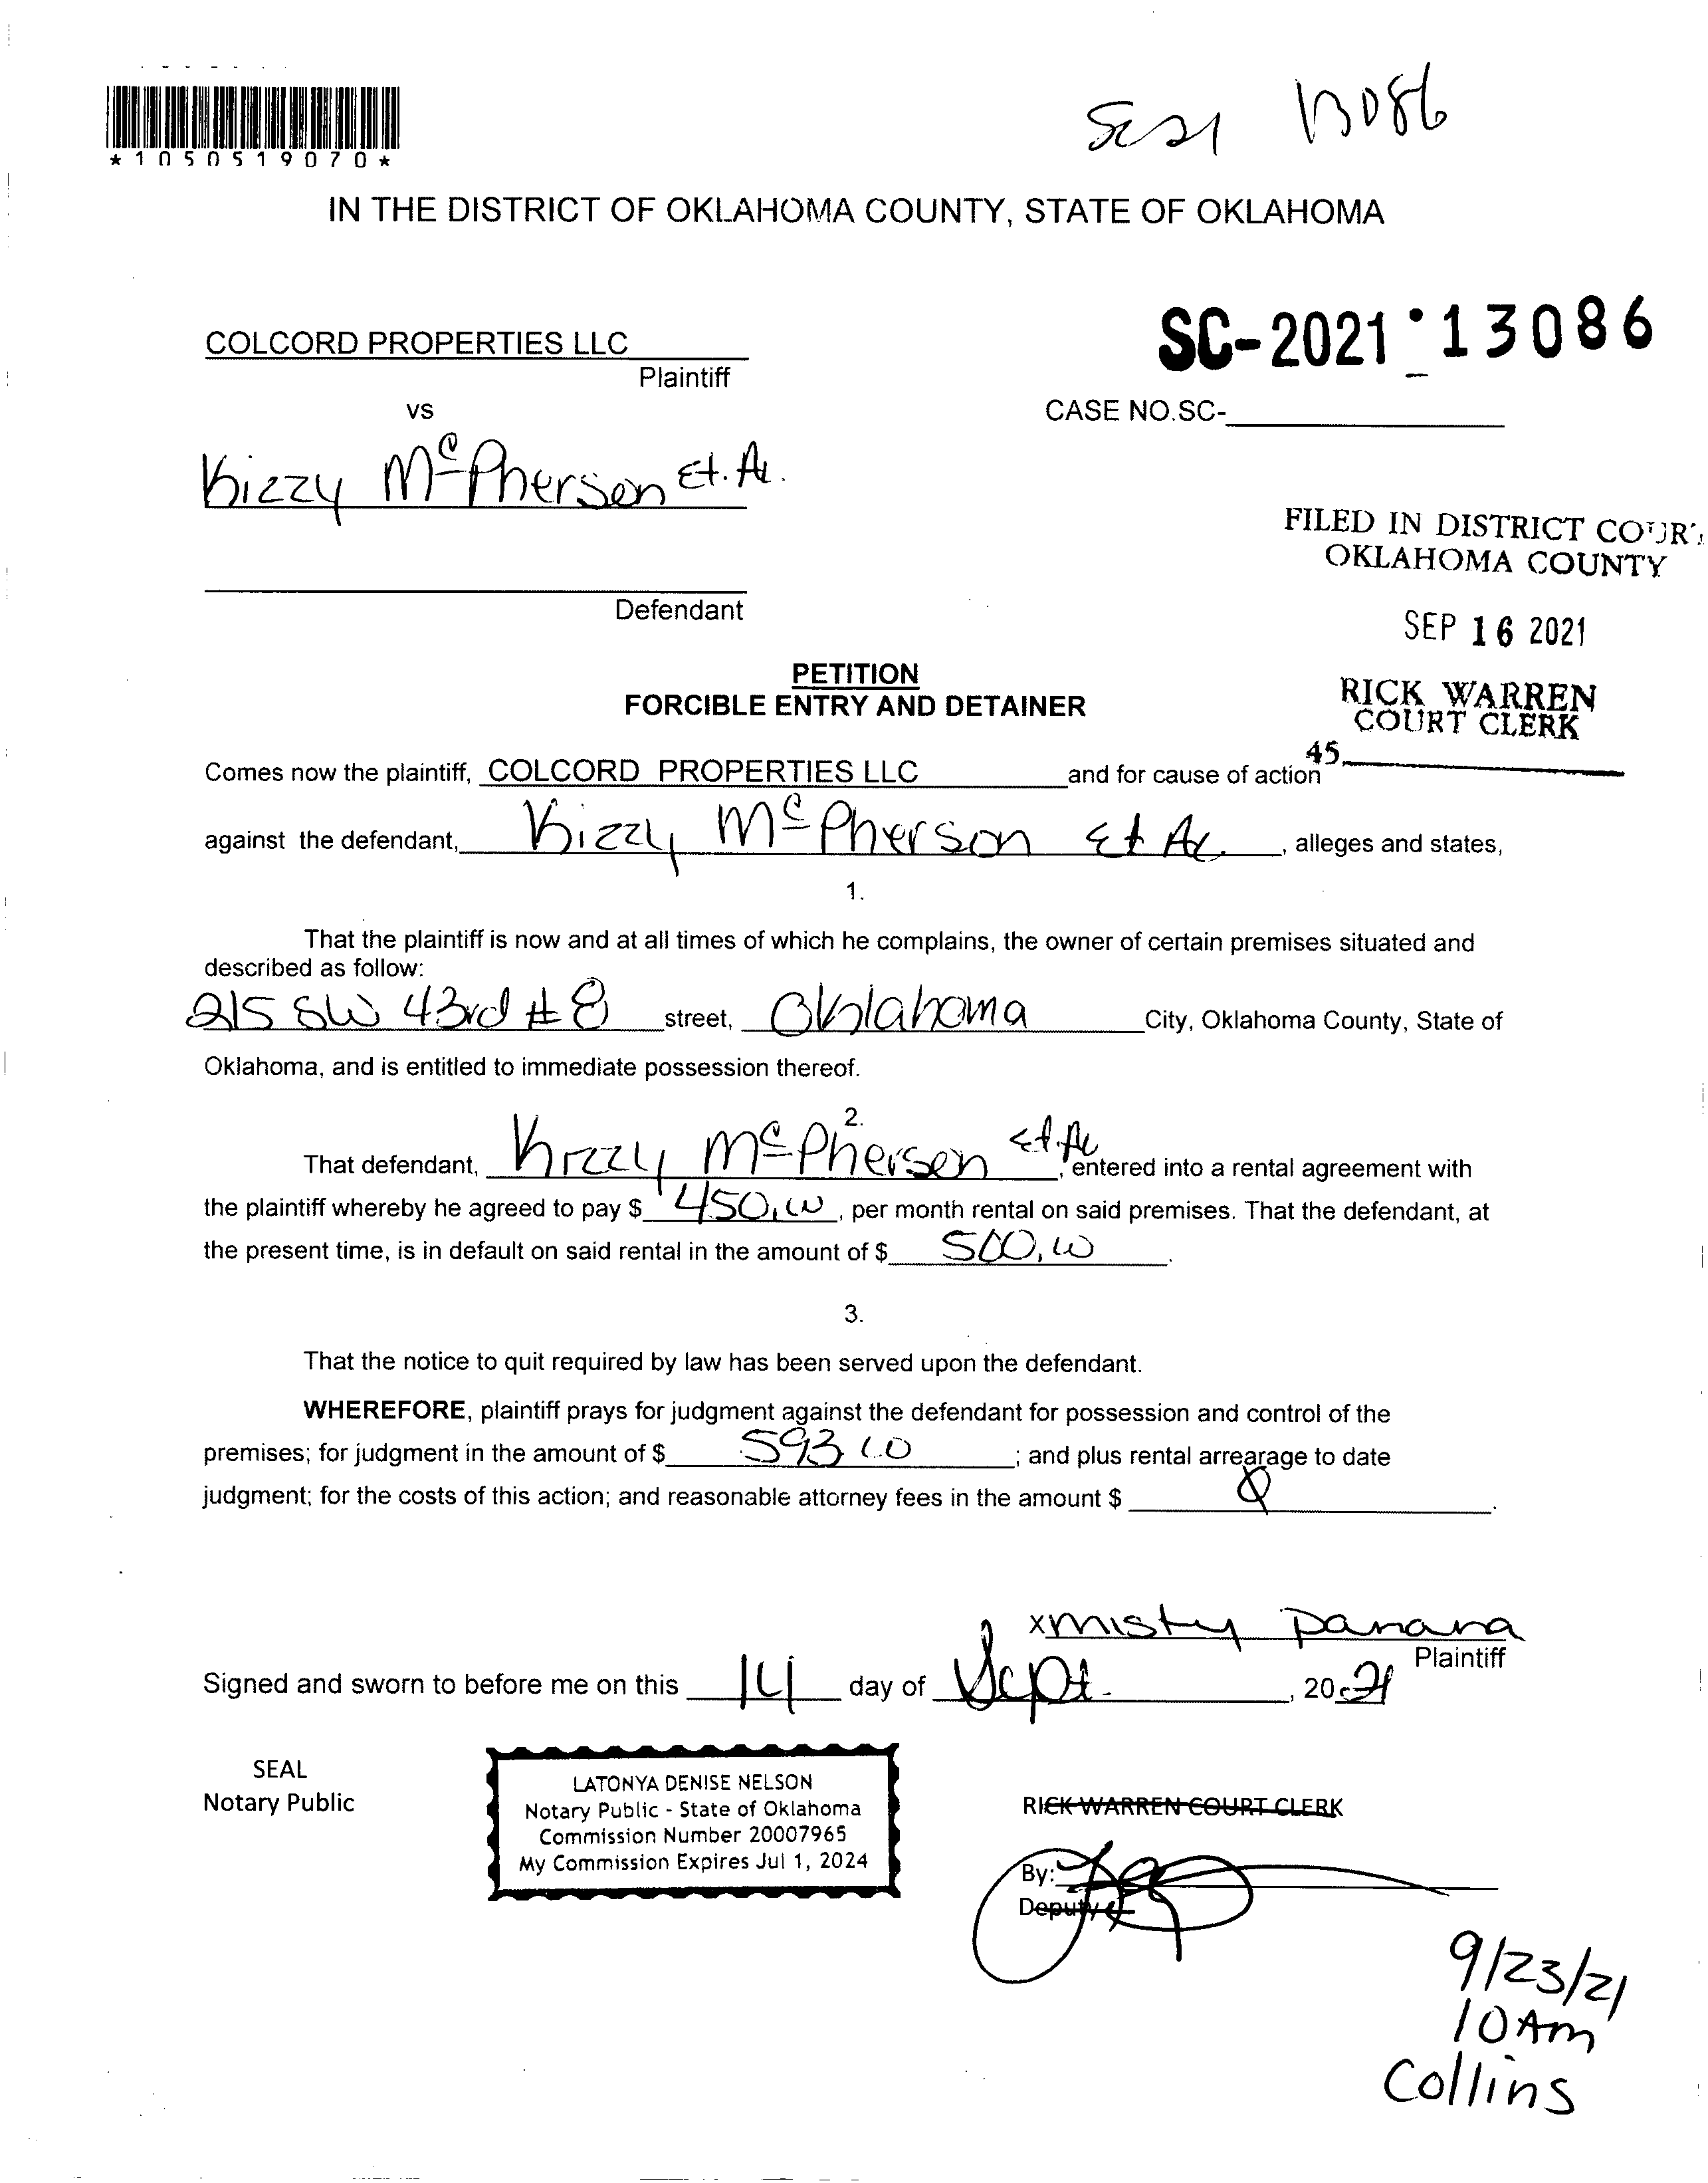 SC21 13086
*1050519070*
IN THE DISTRICT OF OKLAHOMA COUNTY, STATE OF OKLAHOMA
SC-2021 13086
COLCORD PROPERTIES LLC
Plaintiff
vs
CASE NO.SC-
Kizzy McPherson Et. Al.
FILED IN DISTRICT COURT
OKLAHOMA COUNTY
Defendant
SEP 16 2021
PETITION
FORCIBLE ENTRY AND DETAINER
RICK WARREN
COURT CLERK
45
Comes now the plaintiff, COLCORD PROPERTIES LLC and for cause of action
against the defendant, Kizzy McPherson Et Al. , alleges and states,
1.
That the plaintiff is now and at all times of which he complains, the owner of certain premises situated and
described as follow:
215 SW 43rd # 8 street, Oklahoma City, Oklahoma County, State of
Oklahoma, and is entitled to immediate possession thereof.
2.
That defendant, Kizzy McPherson Et. Al , entered into a rental agreement with
the plaintiff whereby he agreed to pay $ 450.00 , per month rental on said premises. That the defendant, at
the present time, is in default on said rental in the amount of $ 500.00 .
3.
That the notice to quit required by law has been served upon the defendant.
WHEREFORE, plaintiff prays for judgment against the defendant for possession and control of the
premises; for judgment in the amount of $ 593.00 ; and plus rental arrearage to date
judgment; for the costs of this action; and reasonable attorney fees in the amount $ 0 .
x Misty Panara
Plaintiff
Signed and sworn to before me on this 14 day of Sept. , 20 21
SEAL
Notary Public
LATONYA DENISE NELSON
Notary Public - State of Oklahoma
Commission Number 20007965
My Commission Expires Jul 1, 2024
RICK WARREN COURT CLERK
By:
Deputy
9/23/21
10 Am
Collins